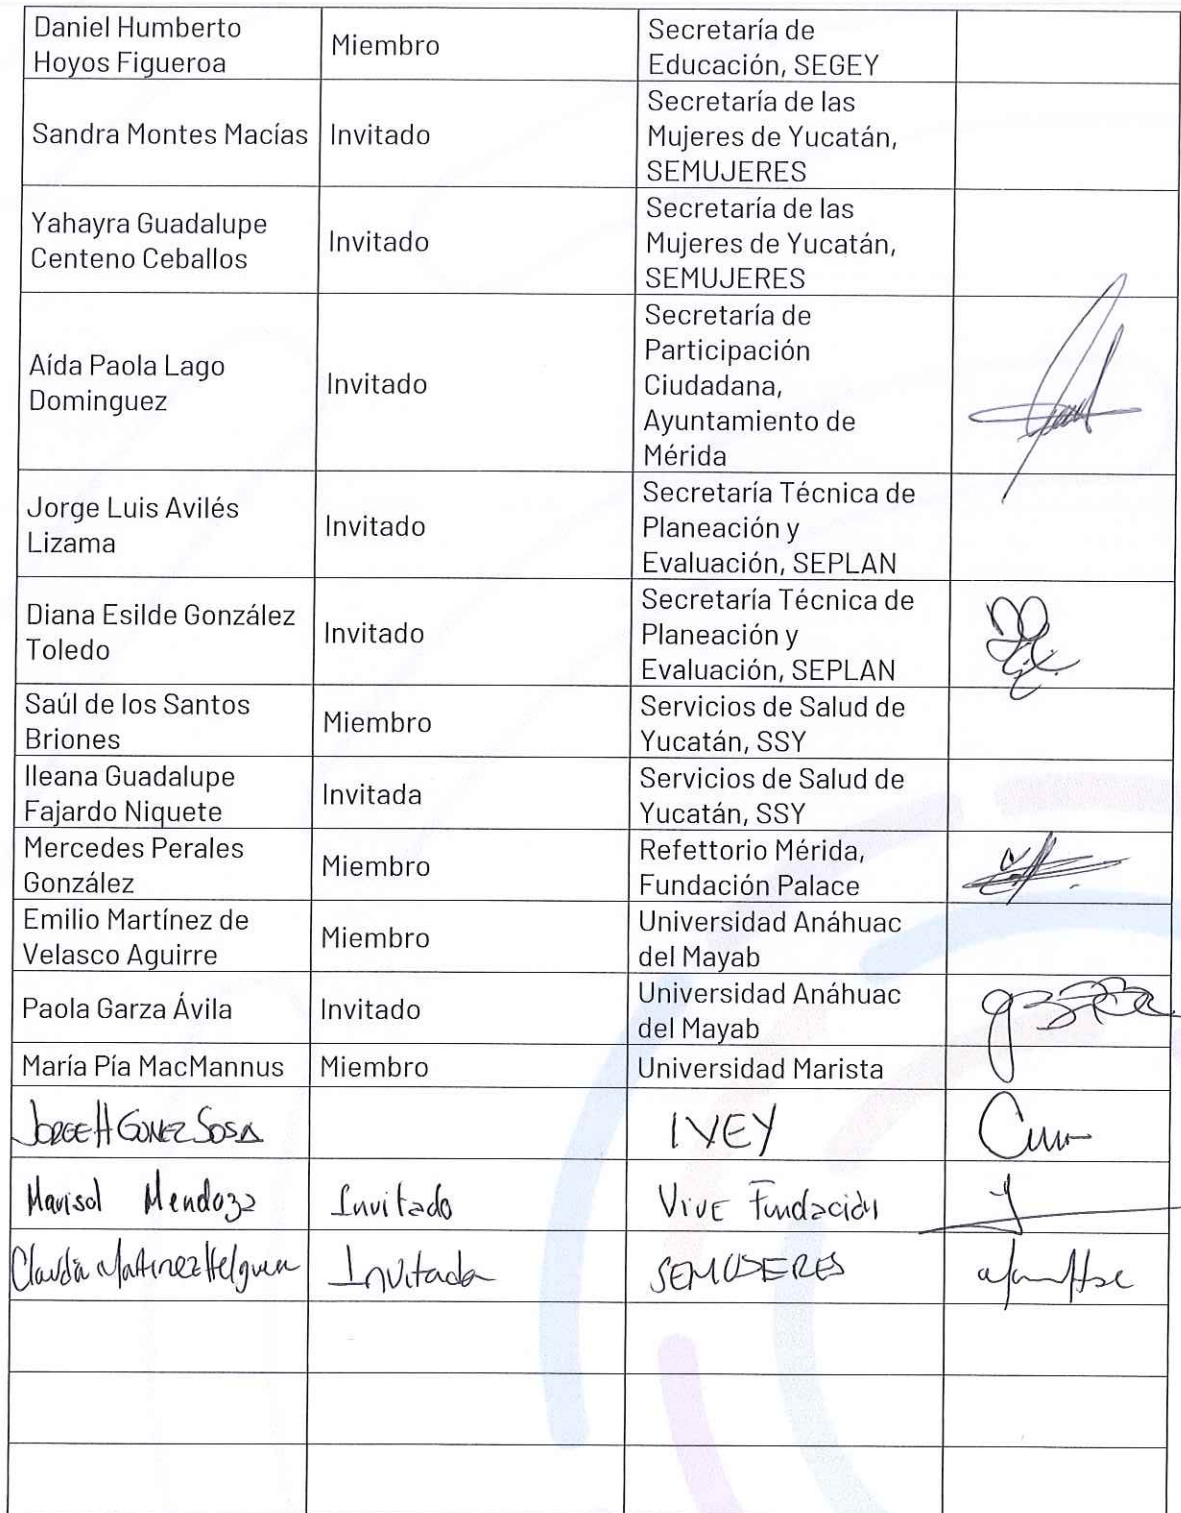 Daniel Humberto
Hoyos Figueroa
Miembro
Secretaría de
Educación, SEGEY
Sandra Montes Macías
Invitado
Secretaría de las
Mujeres de Yucatán,
SEMUJERES
Yahayra Guadalupe
Centeno Ceballos
Invitado
Secretaría de las
Mujeres de Yucatán,
SEMUJERES
Aída Paola Lago
Dominguez
Invitado
Secretaría de
Participación
Ciudadana,
Ayuntamiento de
Mérida
Jorge Luis Avilés
Lizama
Invitado
Secretaría Técnica de
Planeación y
Evaluación, SEPLAN
Diana Esilde González
Toledo
Invitado
Secretaría Técnica de
Planeación y
Evaluación, SEPLAN
Saúl de los Santos
Briones
Miembro
Servicios de Salud de
Yucatán, SSY
Ileana Guadalupe
Fajardo Niquete
Invitada
Servicios de Salud de
Yucatán, SSY
Mercedes Perales
González
Miembro
Refettorio Mérida,
Fundación Palace
Emilio Martínez de
Velasco Aguirre
Miembro
Universidad Anáhuac
del Mayab
Paola Garza Ávila
Invitado
Universidad Anáhuac
del Mayab
María Pía MacMannus
Miembro
Universidad Marista
JORGE H GOMEZ SOSA
IVEY
Marisol Mendoza
Invitado
Vive Fundación
Claudia Martinez Helguera
Invitada
SEMUJERES